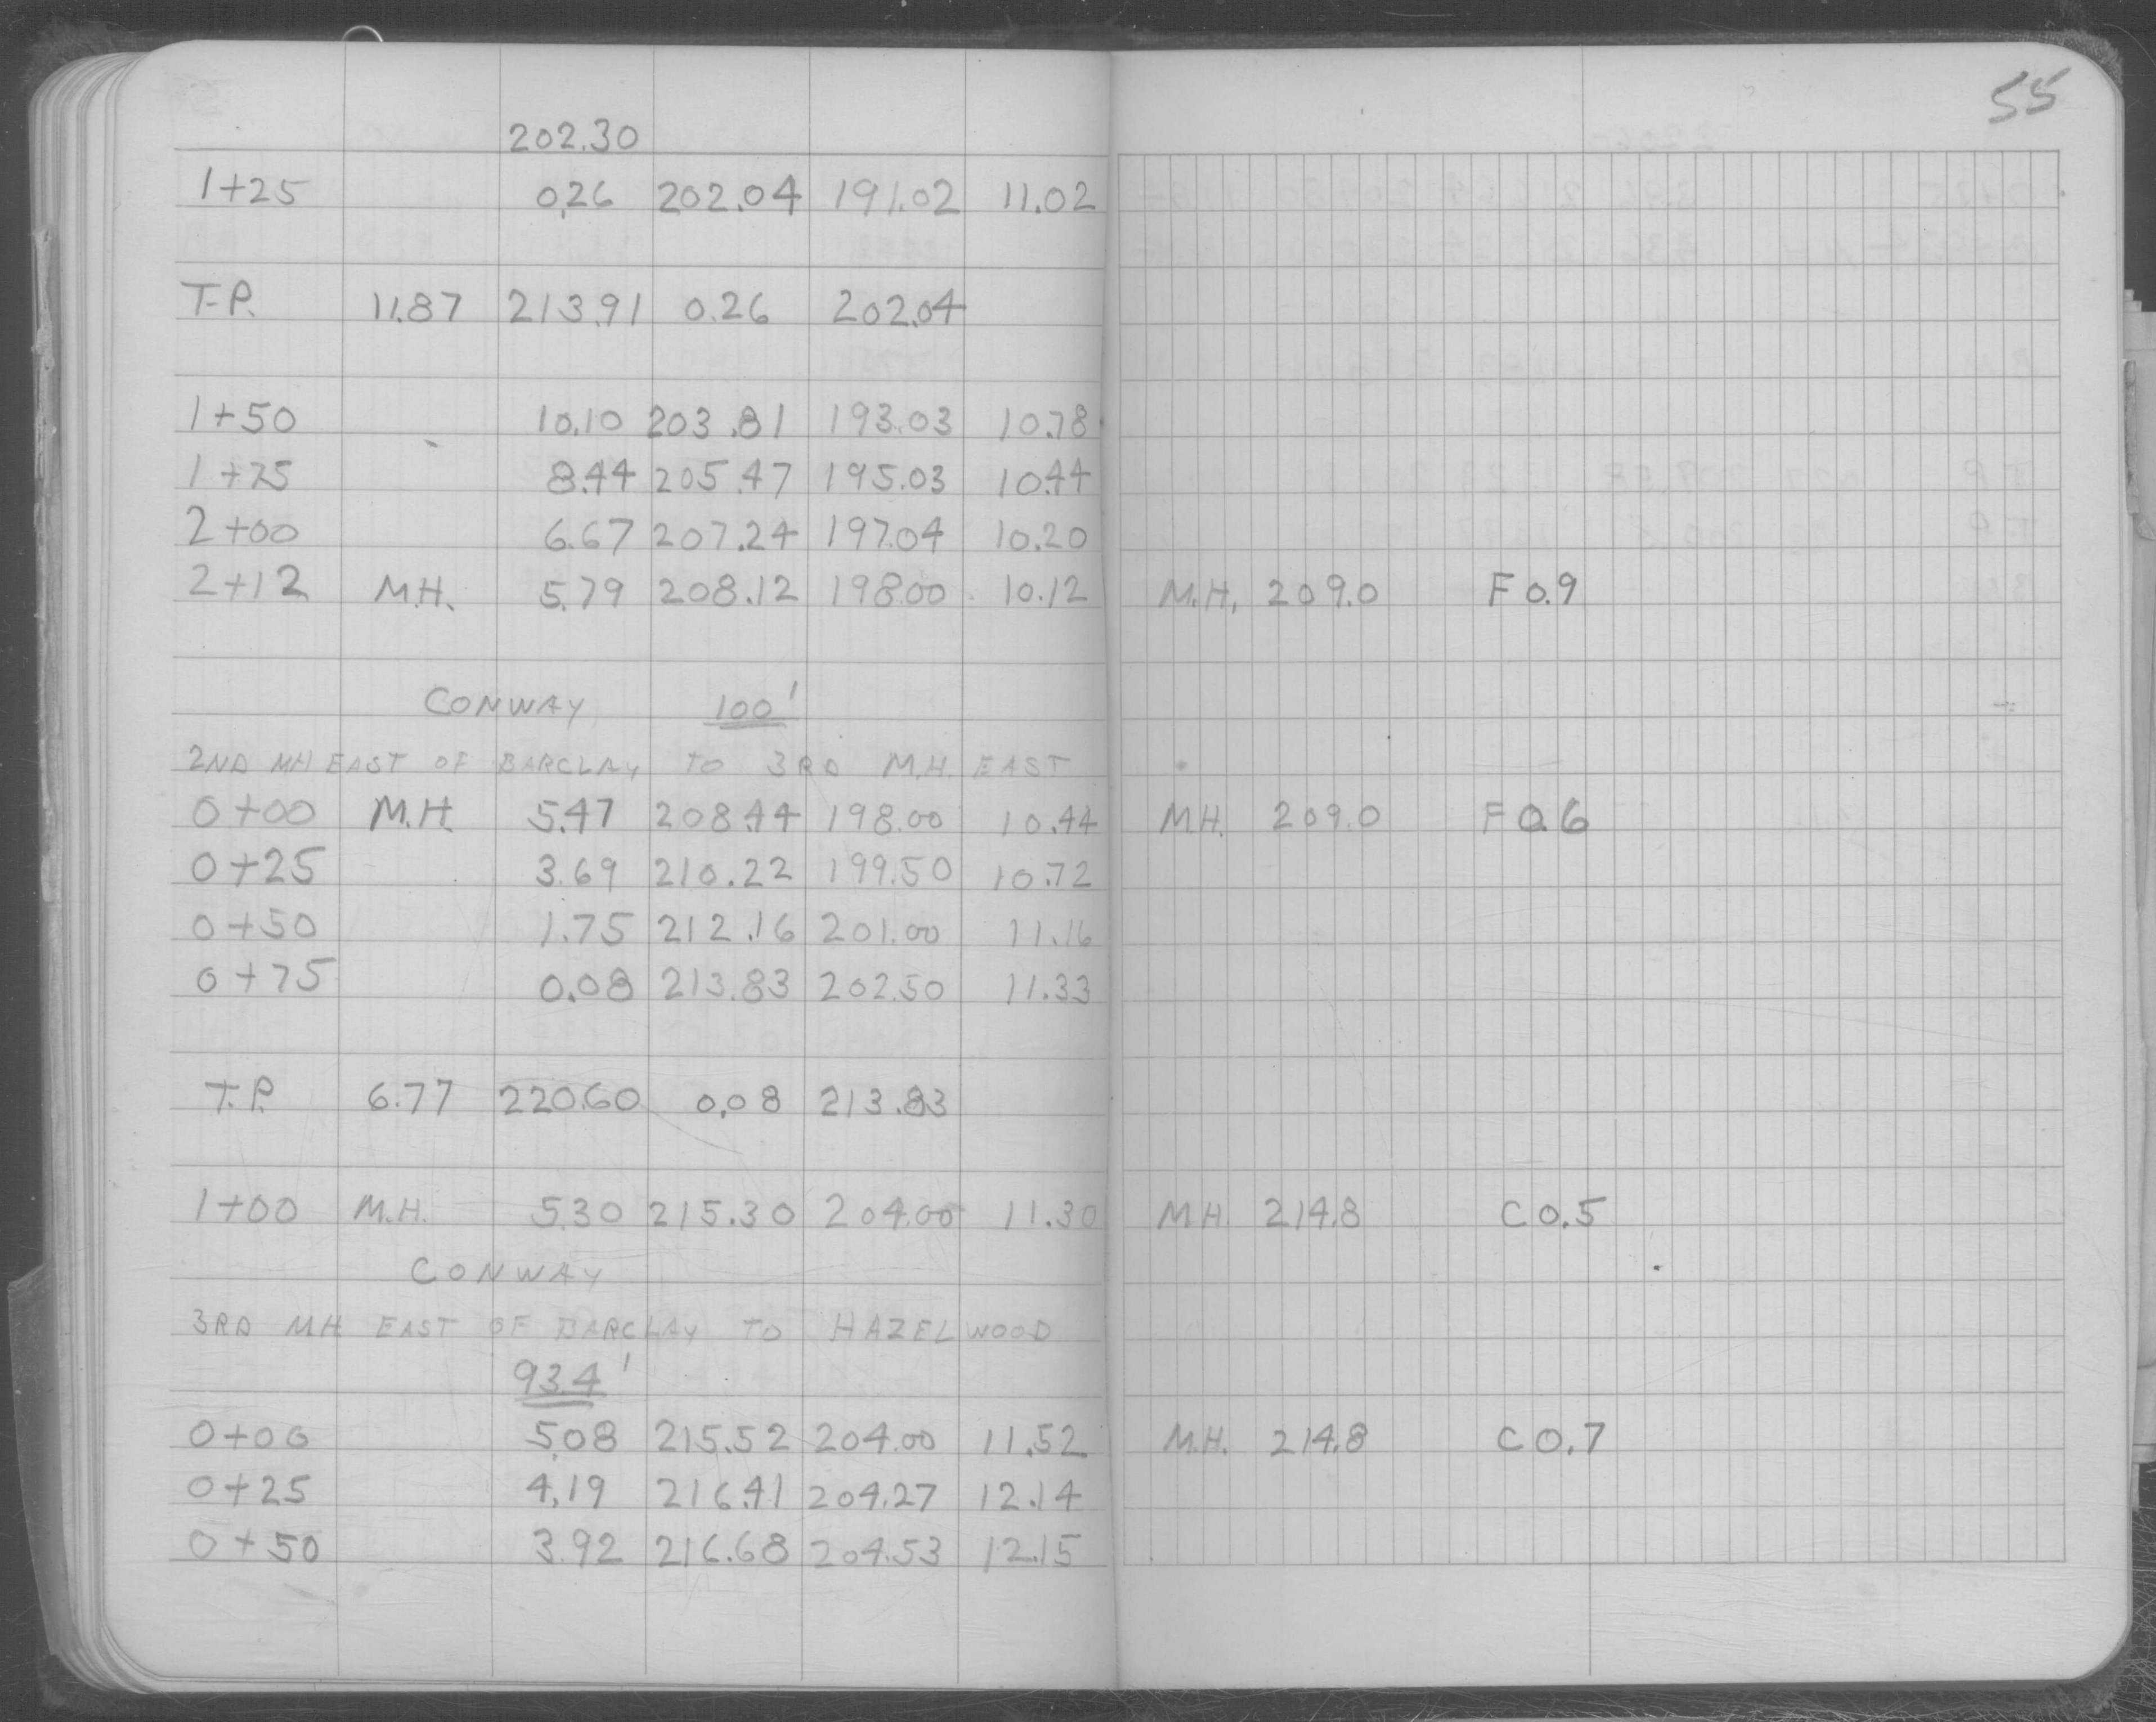 55
202.30
1+25 0.26 202.04 191.02 11.02
T.P. 11.87 213.91 0.26 202.04
1+50 10.10 203.81 193.03 10.78
1+75 8.44 205.47 195.03 10.44
2+00 6.67 207.24 197.04 10.20
2+12 M.H. 5.79 208.12 198.00 10.12 M.H. 209.0 F 0.9
CONWAY 100'
2ND MH EAST OF BARCLAY TO 3RD M.H. EAST
0+00 M.H. 5.47 208.44 198.00 10.44 M.H. 209.0 F 0.6
0+25 3.69 210.22 199.50 10.72
0+50 1.75 212.16 201.00 11.16
0+75 0.08 213.83 202.50 11.33
T.P. 6.77 220.60 0.08 213.83
1+00 M.H. 5.30 215.30 204.00 11.30 M.H. 214.8 C 0.5
CONWAY
3RD MH EAST OF BARCLAY TO HAZELWOOD
93.4'
0+00 5.08 215.52 204.00 11.52 M.H. 214.8 C 0.7
0+25 4.19 216.41 204.27 12.14
0+50 3.92 216.68 204.53 12.15